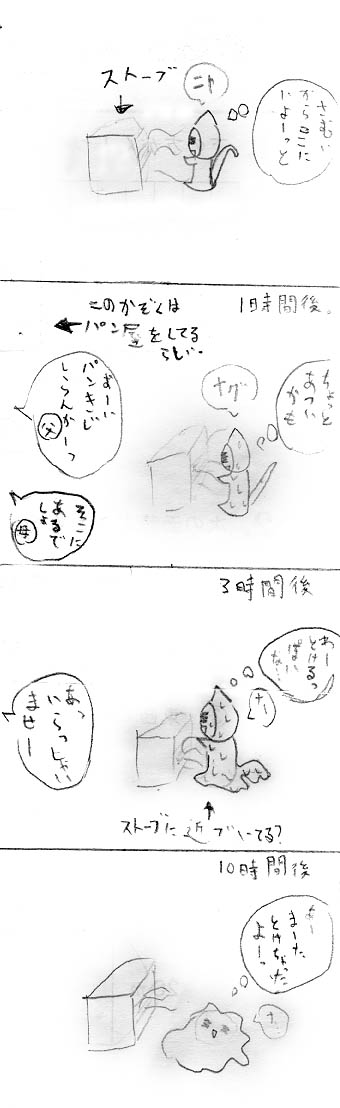 ストーブ
さむい
からここに
いよーっと
1時間後。
このかぞくは
パン屋をしてる
らしい。
ちょっと
あつい
かも
おーい
パンきじ
しらんかーっ
父
そこに
あるで
しょ
母
3時間後
あー
とけるっ
ぽい
な
あっ
いらっしゃい
ませー
ストーブに近づいてる?
10時間後
あー
まーた
とけちゃった
よーっ